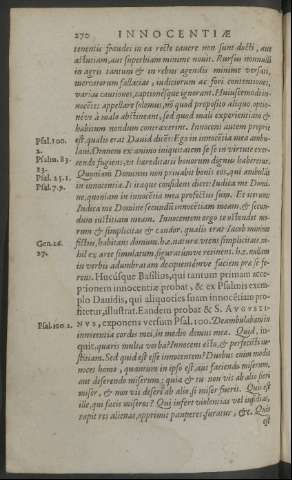 270 INNOCENTIÆ
tenentis fraudes in ea recte cauere non sunt docti, aut
astutiam, aut superbiam minime nouit. Rursus nonnulli
in agris tantum & in rebus agendis minime versati,
mercatorum fallacias, iudiciorum ac fori contentiones,
varias cautiones, captionesque ignorant. Huiusmodi in-
nocētes appellare solemus, nō quod proposito aliquo optio-
neve à malo abstineant, sed quod mali experientiam &
habitum nondum contraxerint. Innocens autem proprie
est, qualis erat Dauid dicēs: Ego in innocētia mea ambu-
Psal. 100.
2.
laui. Omnem ex animo iniquitatem se se in virtute exer-
cendo fugiens, vt hereditarii bonorum dignus haberetur.
Psalm. 83.
13.
Quoniam Dominus non priuabit bonis eos, qui ambulāt
Psal. 25. 1.
in innocentia. Itaque confidens dicit: Iudica me Domi-
Psal. 7. 9.
ne, quoniam in innocētia mea profectus sum. Et iterum:
Iudica me Domine secundū innocētiam meam, & secun-
dum iustitiam meam. Innocentem ergo testificādi mo-
rum & simplicitas & candor. qualis erat Iacob minime
Gen. 26.
27.
fictus, habitans domum. h.e. naturæ viens simplicitate, ni-
hil ex arte simulatum figuratumve reuinens. h.e. nullam
in verbis adumbratam deceptionisque faciem præ se fe-
rens. Hucusque Basilius, qui tantum primam acce-
ptionem innocentiæ probat, & ex Psalmis exem-
plo Dauidis, qui aliquoties suam innocētiam pro-
fitetur, illustrat. Eandem probat & S. AVGVSTI-
NVS, exponens versum Psal. 100. Deambulabat in
Psal. 100. 2.
innocentia cordis mei, in medio domus meæ. Quid, in-
quit, quæris multa verba? Innocens esto, & perfecisti iu-
stitiam. Sed quid est esse innocentem? Duobus enim modis
nocet homo, quantum in ipso est, aut faciendo miserum,
aut deserendo miserum: quia & tu non vis ab alio fieri
miser, & non vis deseri ab alio, si miser fueris. Quis est
ille, qui facit miseros? Qui infert violentias vel insidias,
rapit res alienas, opprimit pauperes, furatur, &c. Quis
est